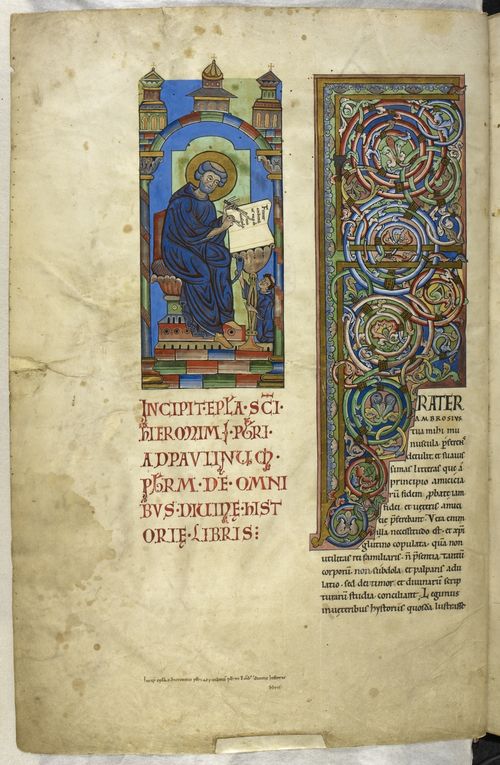 INCIPIT·EPLA·SCI·
HIERONIMI·PBRI·
AD PAULINUM·
PBRM·DE·OMNI
BUS·DIVINĘ·HIST
ORIĘ·LIBRIS:
FRATER
AMBROSIUS
tua mihi mu
nuscula pferens
detulit & suavis
simas litteras que a
principio amicicia
rū fidem pbate iam
fidei & veteris amici
cię pferebant. Vera enim
illa necessitudo est. & xpi
glutino copulata. quā non
utilitas rei familiaris. n̄ psentia tantū
corporū. non subdola & palpans adu
latio. sed dei timor. & divinarū scrip
turarū studia conciliant. Legimus
in veteribus hystoriis quosdā lustrasse